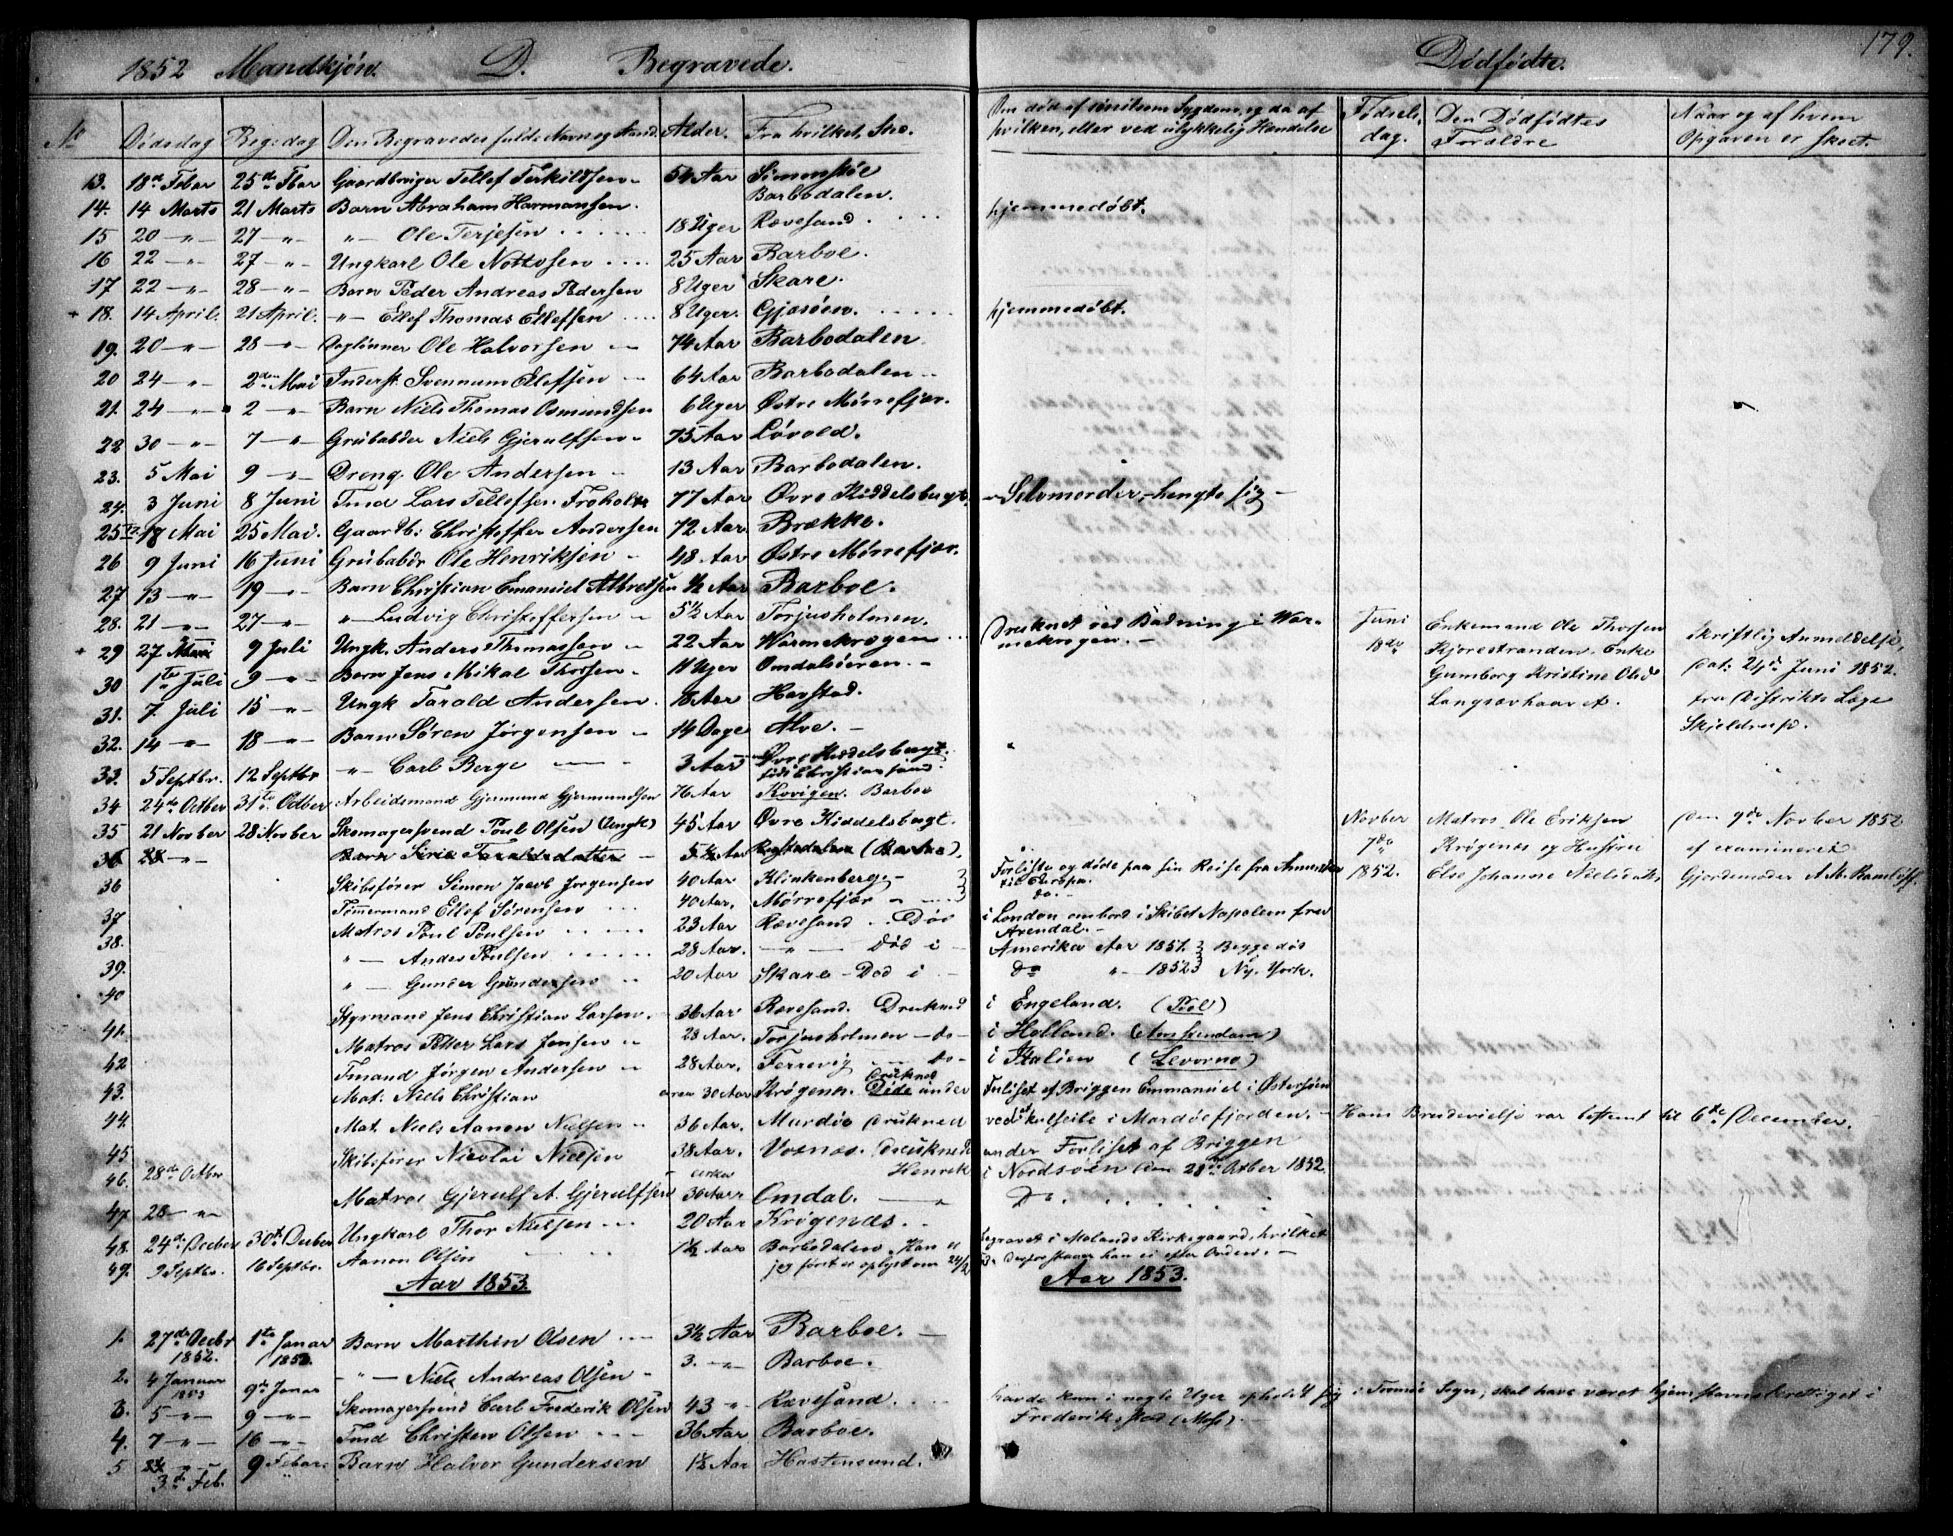 179.
1852 Mandkjön. D. Begravede. Dødfødte.
No Dødsdag Beg: dag Den Begravedes fulde Navn og Stand. Alder. Fra hvilket Sted. Om død af smitsom Sygdom, og da af hvilken, eller ved ulykkelig Hændelse Fødselsdag. Den Dødfødtes Forældre Naar og af hvem Opgaven er skeet.
13. 18de Febar 25de Fbar Gaardbruger Tellef Terkildsen 54 Aar Simonstöe
14. 14 Marts 21 Marts Barn Abraham Harmansen. Barbodalen. hjemmedöbt.
15 20 -"- 27 -"- "- Ole Terjesen 18 Uger Rævesand.
16 22 -"- 27 -"- Ungkarl Ole Nottosen 25 Aar Barboe.
17 22 -"- 28 -"- Barn Peder Andreas Pedersen 8 Uger Skare.
+ 18. 14 April. 21 April. "- Ellef Thomas Ellefsen 8 Uger. Gjøsöen. hjemmedöbt.
19. 20 -"- 28 -"- Daglönner Ole Halvorsen 74 Aar Barbodalen
20 24 -"- 2den Mai Inderst Svennum Ellefsen 64 Aar Barbodalen
21. 24 -"- 2 -"- Barn Niels Thomas Osmundsen 6 Uger Østre Mörrefjær.
22 30 -"- 7 -"- Grubabder Niels Gjerulfsen 75 Aar Lövold.
23. 5 Mai 9 -"- Dreng Ole Andersen 13 Aar Barbodalen.
24. 3 Juni 8 Juni Fmd Lars Tellefsen Froholt 77 Aar Øvre Kiddelsbugt. Selvmorder, hengte sig
25 18 Mai 25 Mai. Gaardb: Christoffer Andersen 72 Aar. Brække.
26 9 Juni 16 Juni Grubabdr Ole Henriksen 48. Aar Østre Mörrefjær.
27 13 -"- 19 -"- Barn Christian Emanuel Albretsen ½ Aar Barboe.
28. 21 -"- 27 -"- "- Ludvig Christoffersen 5½ Aar Torjusholmen.
+ 29 27 Juni 9 Juli Ungk. Anders Thomassen 22 Aar Warmekrogen Druknet ved Badning i Warmekrogen.
30 1ste Juli 9 -"- Barn Jens Mikal Thorsen 11 Uger Omdalsören.
31. 7. Juli 15 -"- Ungk Tarald Andersen. 18 Aar Havstad.
32. 14 -"- 18 -"- Barn Sören Jörgensen 14 Dage Alve.
33. 5 Septbr. 12 Septbr "- Carl Berge 3 Aar Øvre Kiddelsbugt. födt Christiansand.
34 24de Octber 31te Octber Arbeidsmand Gjermund Gjermundsen 76 Aar Kovigen. Barboe
35 21 Novber 28 Novber Skomagersvend Poul Olsen (Ungk) 45 Aar Øvre Kiddelsbugt.
Juni 18de Enkemand Ole Thorsen Kjorestranden. Enke Gumborg Kristine Olsd Langsævhaavet. Skriftlig Anmeldelse, dat: 24de Juni 1852. fra Distrikts Læge Skjeldrup.
36 28 -"- Barn Sirie Taraldsdatter 5½ Aar (Barboe).
36 Skibsförer Simon Jacob Jørgensen 40 Aar Klinkenberg Forliste og døde paa sin Reise fra Amerika til Europa.
37 Tömmermand Ellef Sörensen 40 Aar. Mörrefjær do.
Novber 7de 1852. Matros Ole Eriksen Krögenæs og Hustru Else Johanne Nielsdatter Den 9de Novber 1852 af examineret Gjordemoder A M.
38. Matros Poul Poulsen 23 Aar Rævesand. Död i London ombord i Skibet Napoleon fra Arendal.
39. "- Anders Poulsen 28 Aar. -"- Död i Amerika Aar 1851. Begge död
40 "- Gunder Gundersen 20 Aar Skare - Död i do "- 1852 Ny-York.
41. Styrmand Jens Christian Larsen. 36 Aar Rævesand. Druknet i Engeland. (Pool)
42 Matros Petter Lars Jensen 23 Aar. Torjusholmen - do - i Holland. (Amsterdam)
43. Fmand Jörgen Andersen 28 Aar. Ferrevig do - i Italien (Levorno)
44. Mat. Niels Christian circa 30 Aar Krögenæs. Druknede Döde under Forliset af Briggen Emmanuel i Østersöen
45 Mat. Niels Aanon Nielsen 36 Aar. Mærdöe Druknede ved Kulseile i Mærdöefjorden. - Hans Brudevielse var bestemt til 6te December.
46. 28de Octbr Skibsförer Nicolai Nielsen 38 Aar. Vosnæs. Druknede under Forliset af Briggen Henrik i Nordsöen den 28de Octber 1852.
47 28 -"- Matros Gjerulf A. Gjerulfsen cirka 30 Aar Omdal. -"- Do.
48. 24de Decber 30te Decber Ungkarl Thor Nielsen 20 Aar Krögenæs. begravet i Molands Kirkegaard, hvilket
49. 9 Septbr. 16 Septbr. Aanon Olsen 1½ Aar Barbodalen. Han er jeg först er oplyst om 24/2 53. derfor staaer han ei efter Orden.
Aar 1853. Aar 1853.
1. 27de Decbr 1852. 1ste Januar 1853. Barn Marthin Olsen 3½ Aar Barboe.
2. 4 Januar 1853 9de Januar "- Niels Andreas Olsen 3. -"- Barboe.
3. 5 -"- 9 -"- Skomagersvend Carl Frederik Olsen 43 -"- Rævesand. havde kun i nogle Uger opholdt sig i Tromöe Sogn, skal have været hjemstavnsberettiget i Frederikstad (Moss)
4. 7 -"- 16 -"- Fmd Christen Olsen 36 Aar Barboe.
5 3de Feb. 9 Febar. Barn Halvor Gundersen 1½ Aar Hastensund.